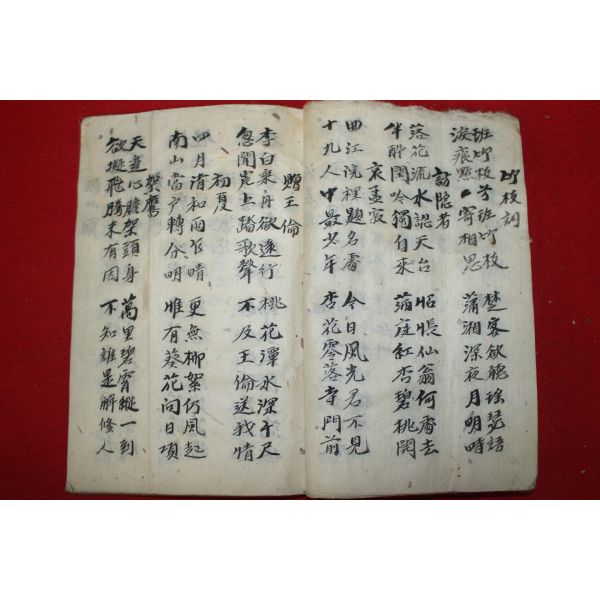 竹枝詞
班竹枝兮班竹枝 楚客欲聽瑤瑟語
淚痕點〃寄相思 瀟湘深夜月明時
訪隐者
落花流水認天台 怊悵仙翁何處去
半醉閑吟獨自來 滿庭紅杏碧桃開
哀孟寂
曲江院裡題名處 今日風光君不見
十九人中最少年 杏花零落寺門前
贈王倫
李白乘舟欲遠行 桃花潭水深千尺
忽聞岸上踏歌聲 不及王倫送我情
初夏
四月清和雨乍晴 更無柳絮仍風起
南山當戶轉分明 惟有葵花向日傾
架鷹
天邊心膽架頭身 萬里碧霄縱一到
欲擬飛騰未有因 不知誰是解絛人